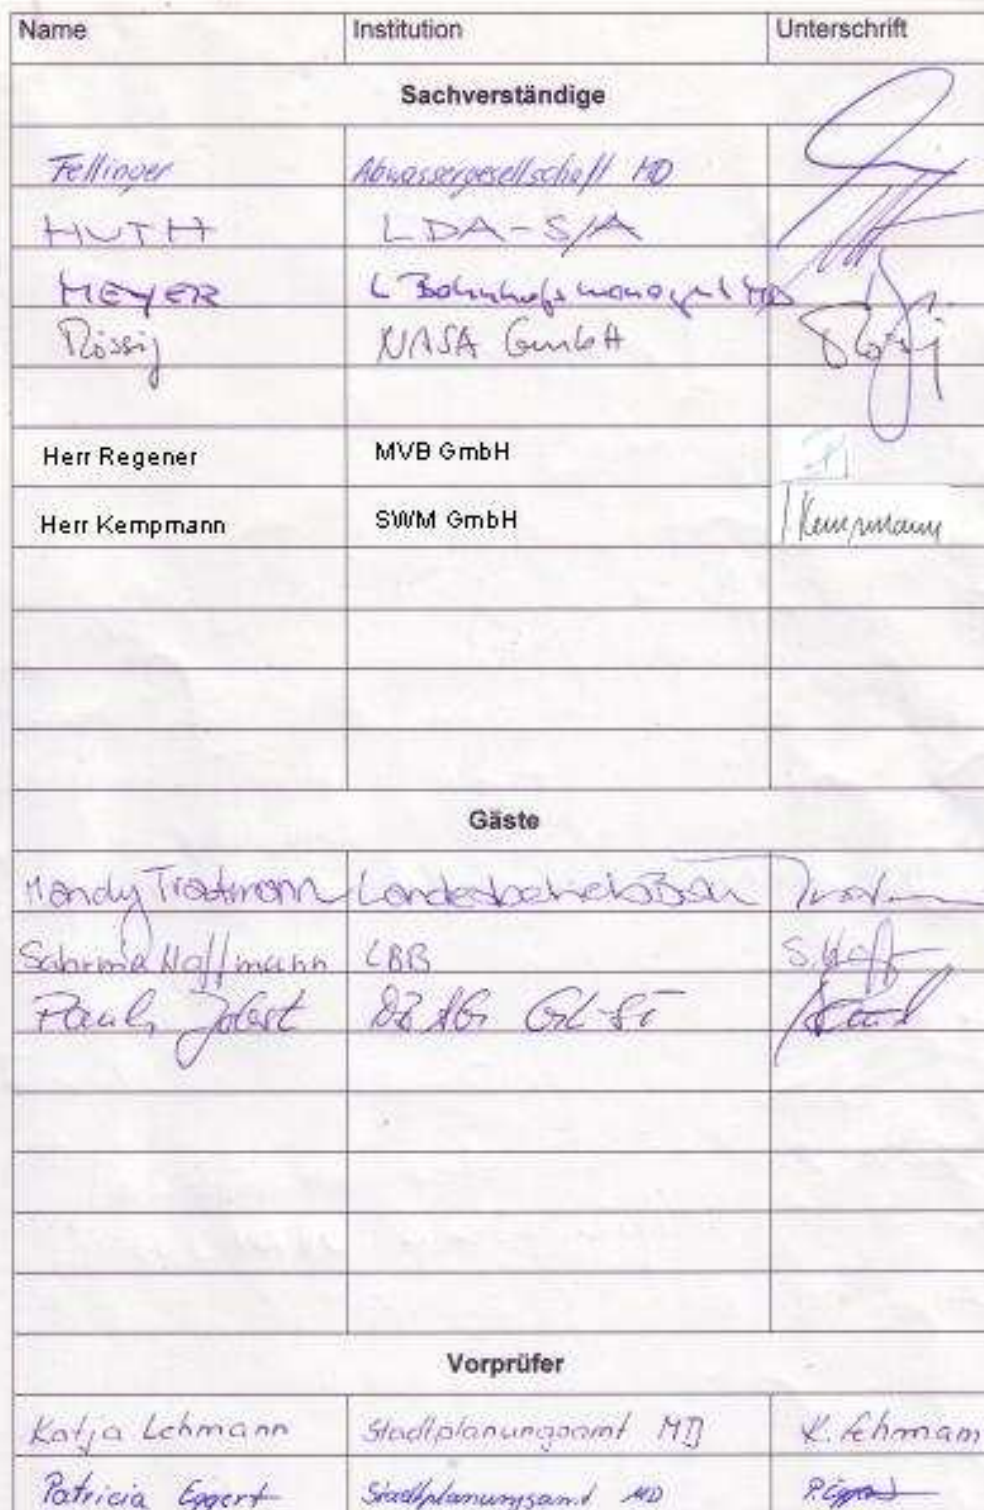 Name Institution Unterschrift
Sachverständige
Fellinger Abwassergesellschaft MD
HUTH LDA-S/A
MEYER L Bahnhofsmanagement MD
Rössig NASA GmbH
Herr Regener MVB GmbH
Herr Kempmann SWM GmbH Kempmann
Gäste
Mandy Trautmann Landesbetrieb Bau
Sabrina Hoffmann LBB S. Hoff
DB AG
Vorprüfer
Katja Lehmann Stadtplanungsamt MD K. Lehmann
Patricia Eggert Stadtplanungsamt MD P. Eggert